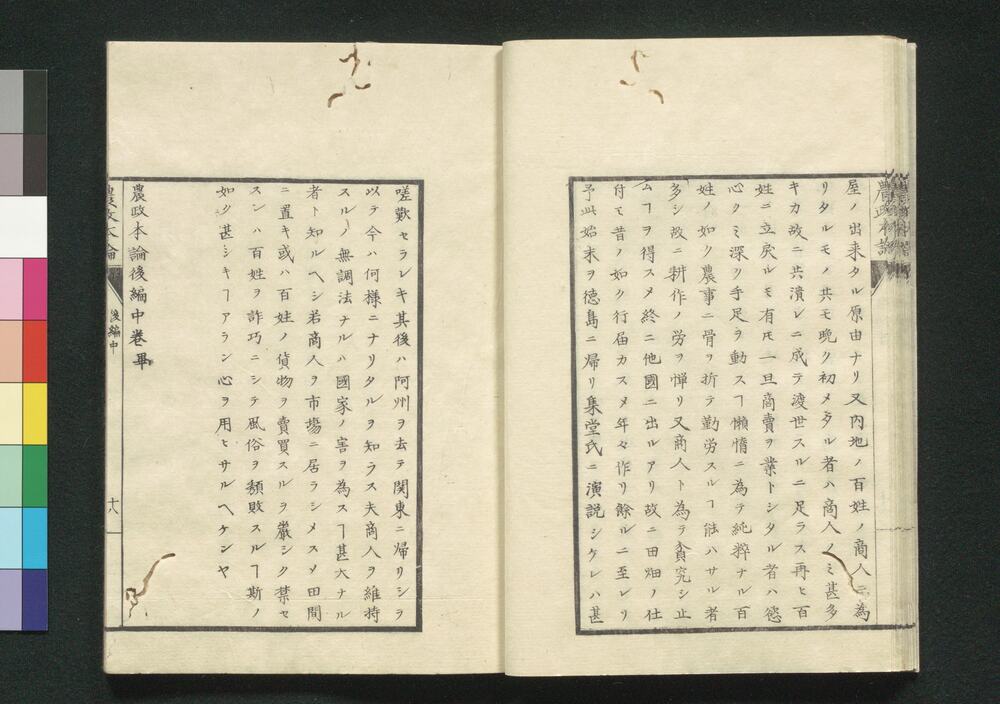 農政本論
屋ノ出来タル原由ナリ又内地ノ百姓ノ商人ニ為
リタルモノ共モ晩ク初メタル者ハ商人ノミ甚多
キカ故ニ共潰レニ成テ渡世スルニ足ラス再ヒ百
姓ニ立戻ルモ有𪜈一旦商賣ヲ業トシタル者ハ慾
心クミ深ク手足ヲ動スヿ懶惰ニ為テ純粹ナル百
姓ノ如ク農事ニ骨ヲ折テ勤労スルヿ能ハサル者
多シ故ニ耕作ノ労ヲ憚リ又商人ト為テ貪究シ止
ムヿヲ得スメ終ニ他國ニ出ルアリ故ニ田畑ノ仕
付モ昔ノ如ク行届カスメ年々作リ餘ルニ至レリ
予此始末ヲ徳島ニ帰リ集堂氏ニ演説シケレハ甚
嗟歎セラレキ其後ハ阿州ヲ去テ関東ニ帰リシヲ
以テ今ハ何様ニナリタルヲ知ラス夫商人ヲ維持
スルノ無調法ナルハ國家ノ害ヲ為スヿ甚大ナル
者ト知ルヘシ若商人ヲ市塲ニ居ラシメスメ田間
ニ置キ或ハ百姓ノ貨物ヲ賣買スルヲ嚴シク禁セ
スンハ百姓ヲ詐巧ニシテ風俗ヲ頽敗スルヿ斯ノ
如ク甚シキヿアラン心ヲ用ヒサルヘケンヤ
農政本論後編中巻畢
農政本論
後編中
十八